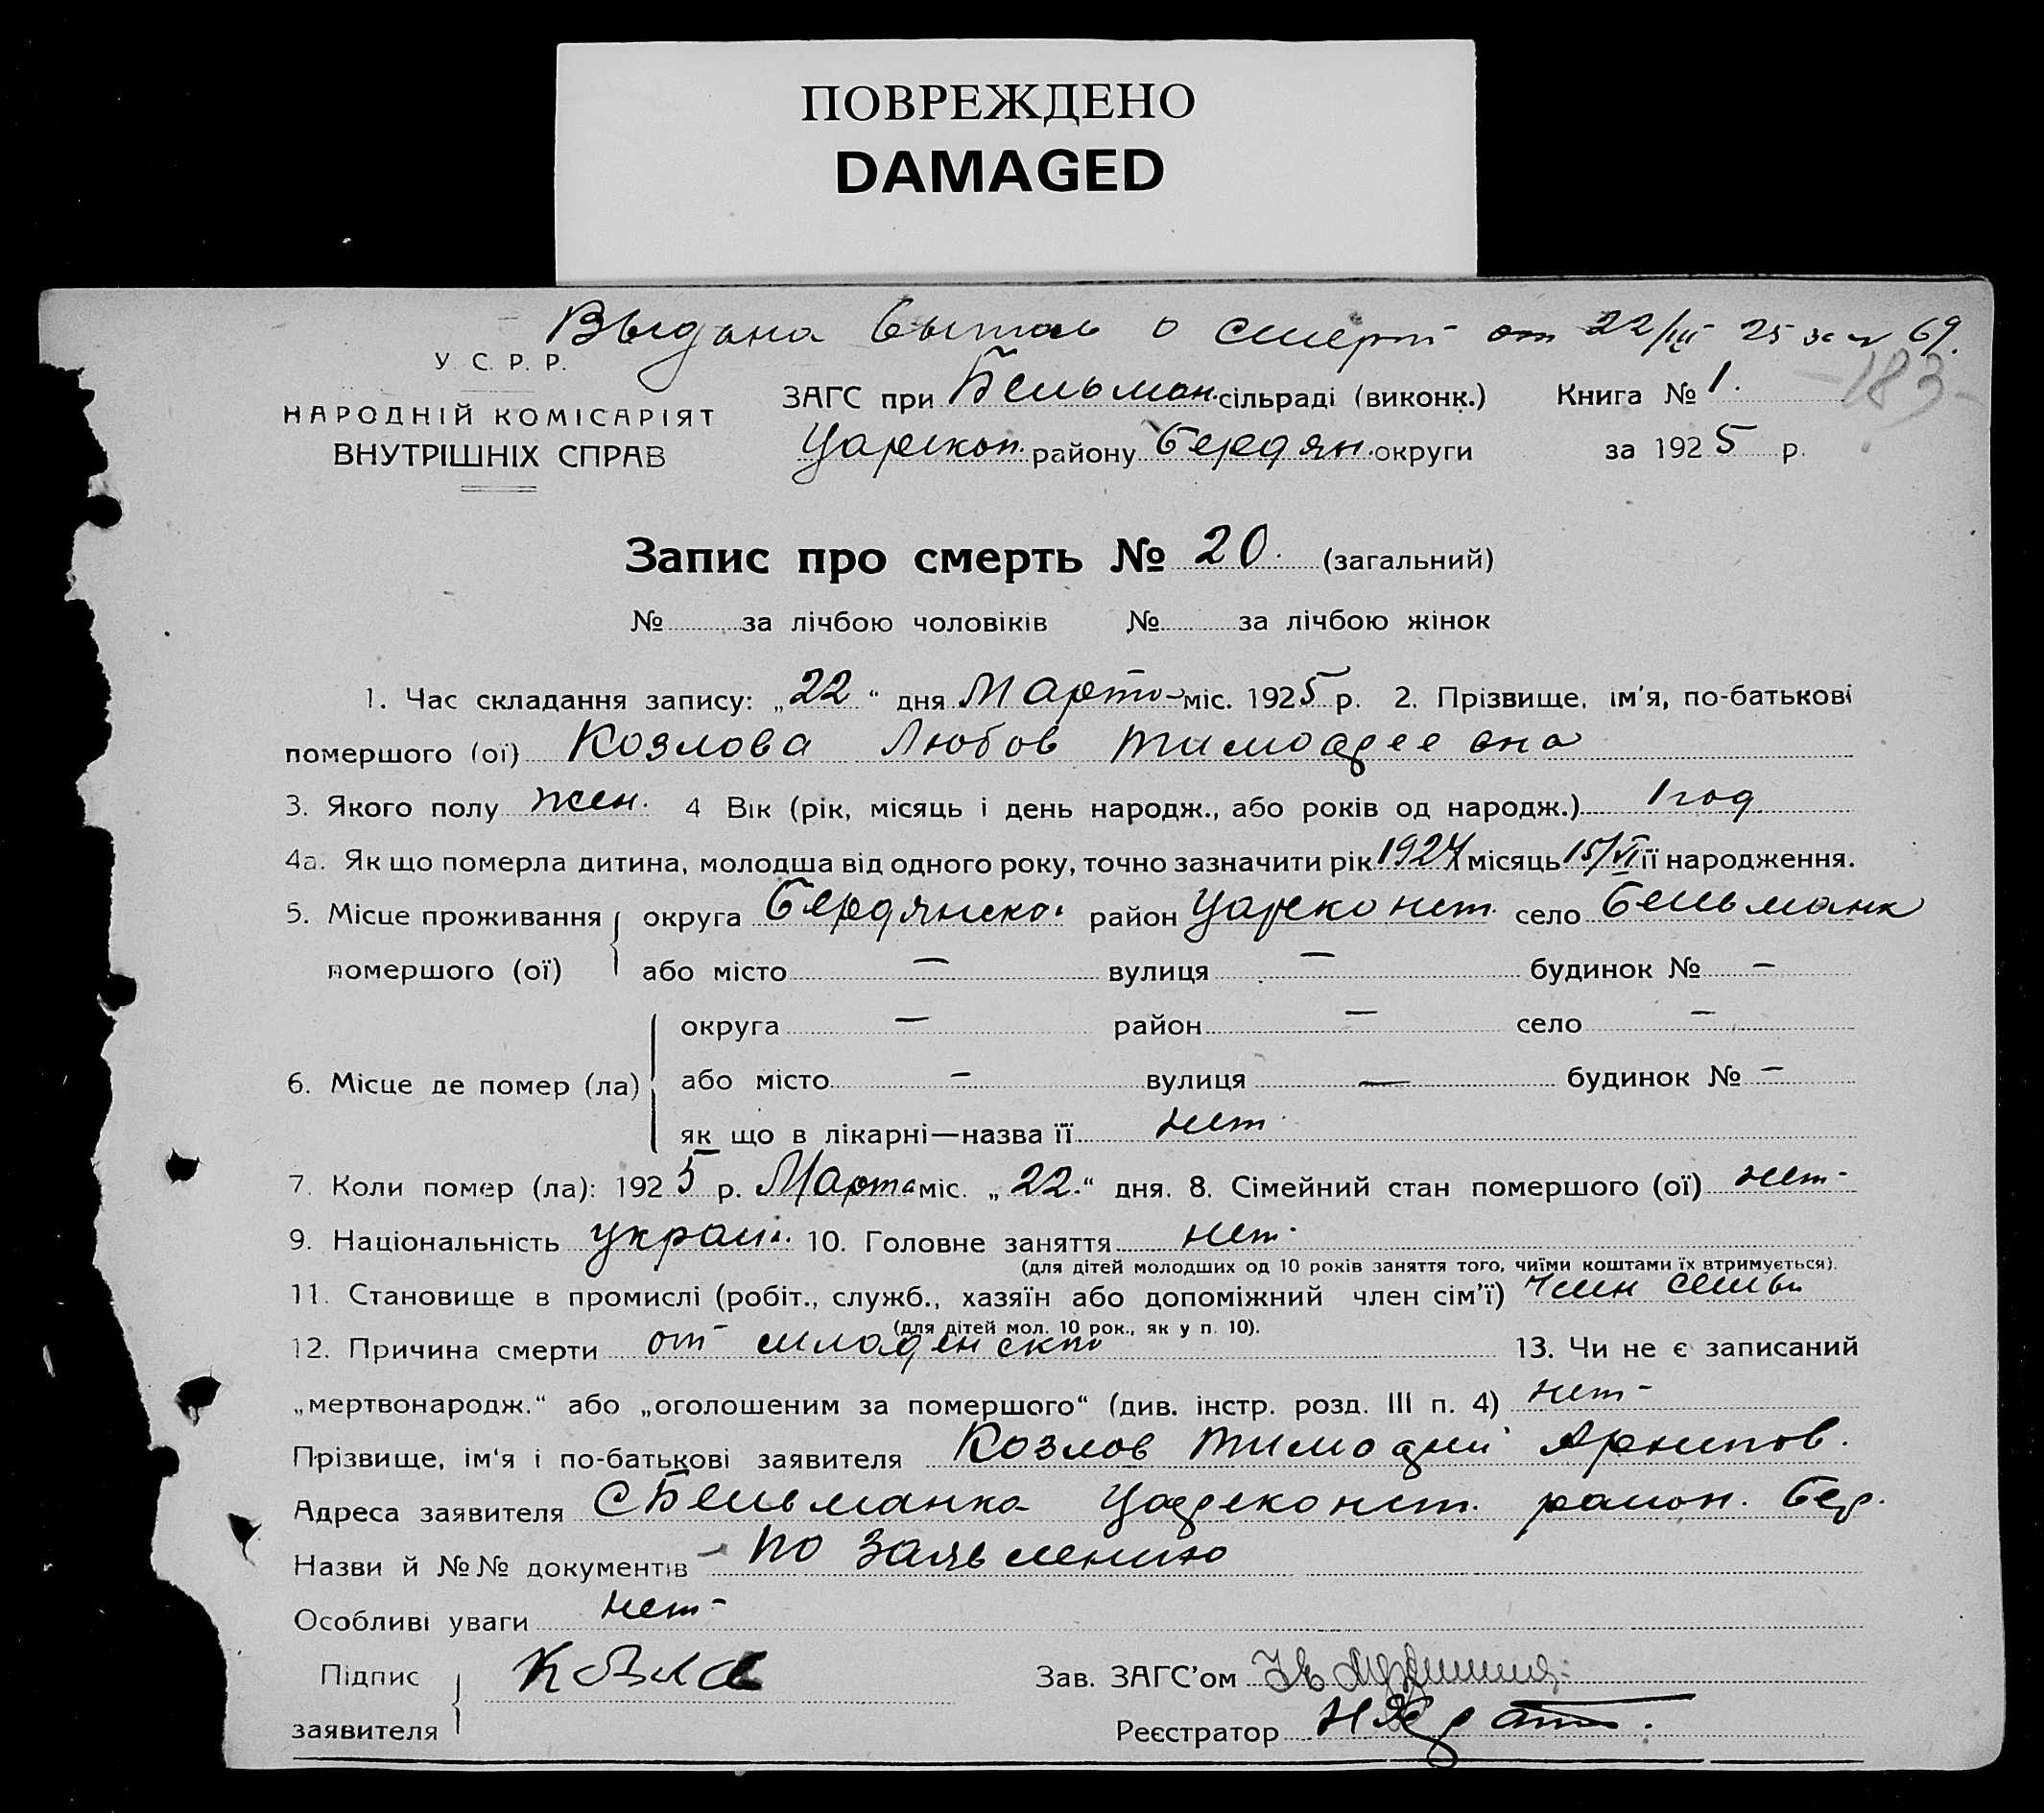 ПОВРЕЖДЕНО
DAMAGED
Выдана о смерт от 22/III 25 69.
У. С. Р. Р.
НАРОДНІЙ КОМІСАРІЯТ
ВНУТРІШНІХ СПРАВ
ЗАГС при Бельман. сільраді (виконк.) Книга № 1.
-183-
Царекон. району Бердян. округи за 1925 р.
Запис про смерть № 20. (загальний)
№ за лічбою чоловіків № за лічбою жінок
1. Час складання запису: „22“ дня Марта міс. 1925 р. 2. Прізвище, ім'я, по-батькові
помершого (ої) Козлова Любов Тимофеевна
3. Якого полу жен. 4 Вік (рік, місяць і день народж., або років од народж.) 1 год
4а. Як що померла дитина, молодша від одного року, точно зазначити рік 1924 місяць 15/VI її народження.
5. Місце проживання округа Бердянско. район Цареконст. село Бельманк
помершого (ої) або місто — вулиця — будинок № —
округа — район — село —
6. Місце де помер (ла) або місто — вулиця — будинок № —
як що в лікарні—назва її нет
7. Коли помер (ла): 1925 р. Марта міс. „22.“ дня. 8. Сімейний стан помершого (ої) нет
9. Національність украин. 10. Головне заняття нет
(для дітей молодших од 10 років заняття того, чиїми коштами їх втримується).
11. Становище в промислі (робіт., служб., хазяїн або допоміжний член сім'ї) член семьи
(для дітей мол. 10 рок., як у п. 10).
12. Причина смерти от младенскт 13. Чи не є записаний
„мертвонародж.“ або „оголошеним за помершого“ (див. інстр. розд. III п. 4) нет
Прізвище, ім'я і по-батькові заявителя Козлов Тимофий Архипов.
Адреса заявителя С Бельманка Цареконст. район. Бер.
Назви й №№ документів по заявлению
Особливі уваги нет
Підпис заявителя Козлов
Зав. ЗАГС'ом
Реєстратор